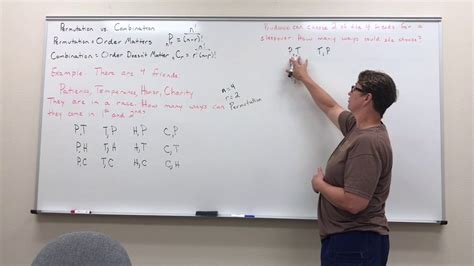 Permutation vs. Combination
Permutation = Order Matters nPr = n! / (n-r)!
Combination = Order Doesn't Matter nCr = n! / r!(n-r)!
Example: There are 4 friends
Patience, Temperance, Honor, Charity
They are in a race. How many ways can
they come in 1st and 2nd
n=4
r=2
Permutation
P,T T,P H,P C,P
P,H T,H H,T C,T
P,C T,C H,C C,H
Prudence can choose 2 of the 4 friends for a
sleepover. How many ways could she choose?
P,T T,P